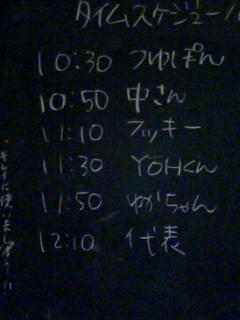 タイムスケジュール
10:30 つゆぽん
10:50 中さん
11:10 フッキー
11:30 YOHくん
11:50 ゆかちゃん
12:10 代表
キレイに使いましょう!!